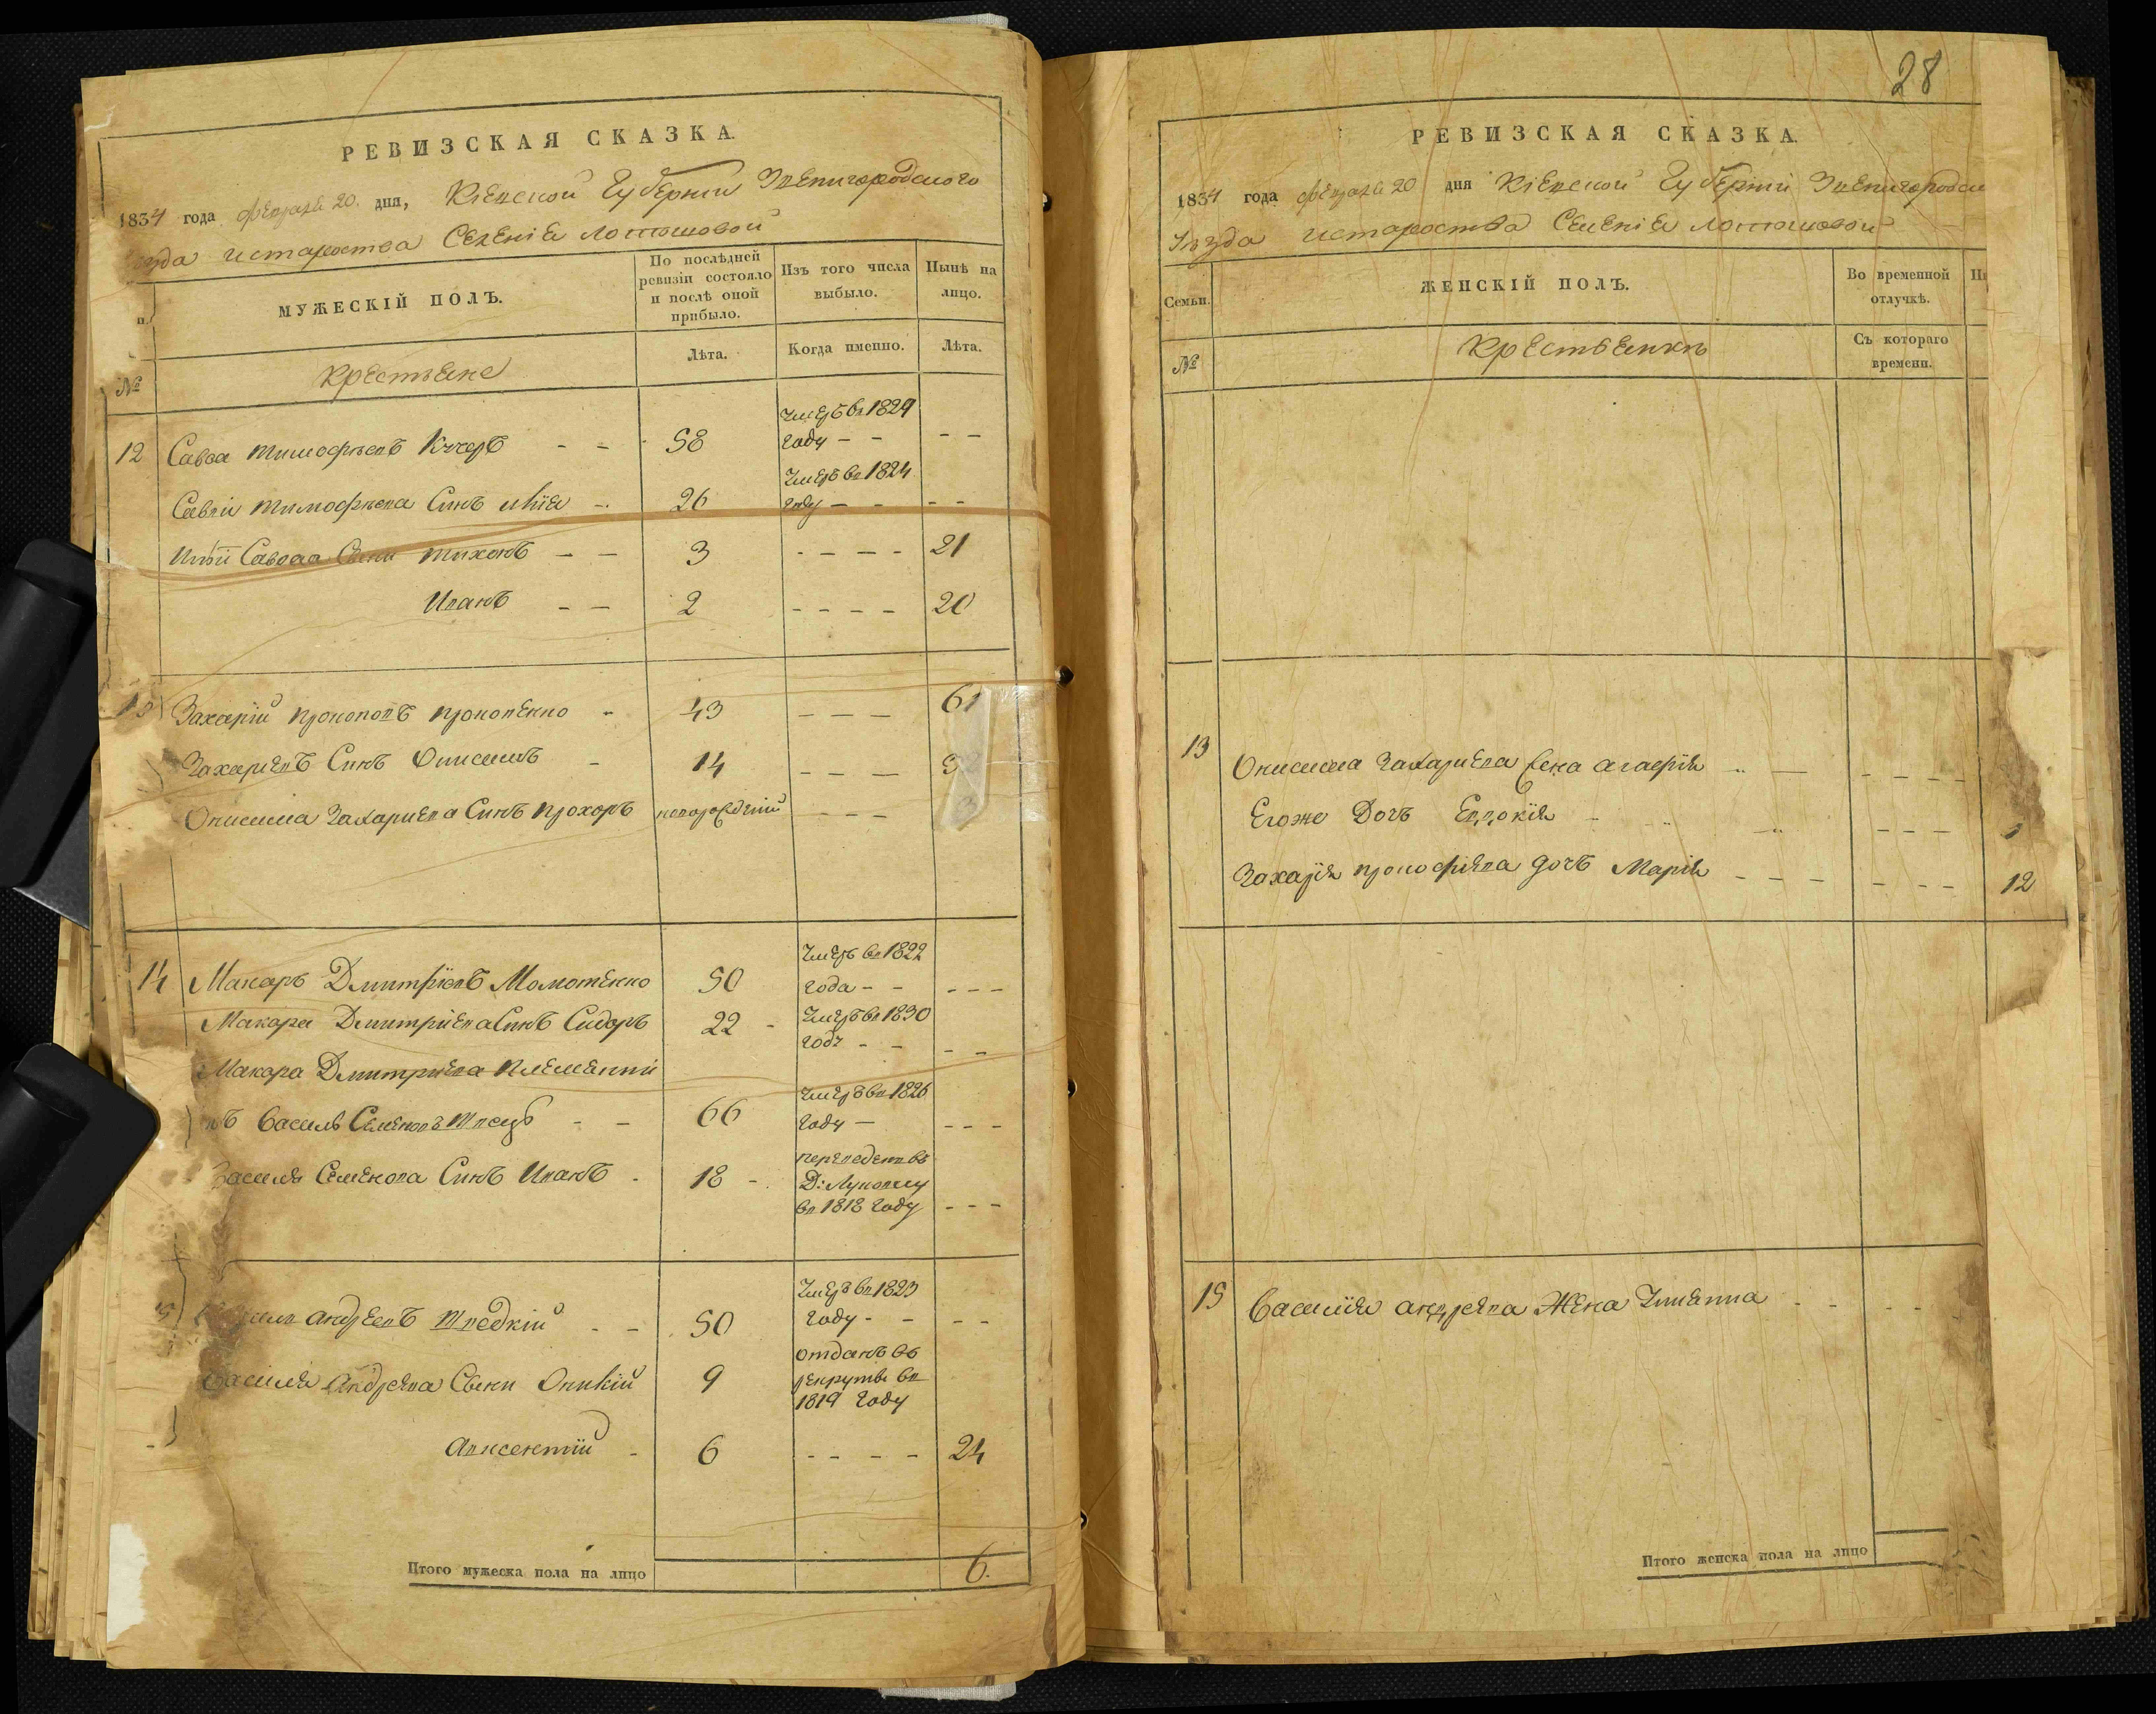 РЕВИЗСКАЯ СКАЗКА.
1834 года февраля 20. дня, Кіевской Губерніи Звенигородского
езда и староства Селенія Лоташовой
МУЖЕСКІЙ ПОЛЪ.
По послѣдней ревизіи состояло и послѣ оной прибыло.
Изъ того числа выбыло.
Нынѣ на лицо.
№
крестьяне
Лѣта.
Когда именно.
Лѣта.
12 Савва Тимофѣевъ Кучеръ - - 58 Умеръ въ 1829 году - - - -
Тимофѣева Синъ Илія - 26 Умеръ въ 1824 году - - - -
Савваа Сыни Тихонъ - - 3 - - - - 21
Иванъ - - 2 - - - - 20
13 Захарій Прокоповъ Прокопенко - 43 - - - 61
Захаріевъ Синъ Онисимъ - 14 - - - 3
Онисима Захаріева Синъ Прохоръ новорожденій - - -
14 Макаръ Дмитріевъ Момотенко 50 Умеръ въ 1822 года - - - - -
Макара Дмитріева Синъ Сидоръ 22 - Умеръ въ 1830 году - - - -
Макара Дмитриева Племянни
къ Василь Семеновъ - - 66 Умеръ въ 1826 году - - - -
Василя Семенова Синъ Иванъ - 18 - переведенъ въ Д: въ 1818 году - - -
Андреевъ Шведкій - - 50 Умеръ въ 1823 году - - - -
Василія Андреева Сыни Оникій 9 отданъ въ рекруты въ 1819 году
Авксентій - 6 - - - - 24
Итого мужеска пола на лицо 6.
28
РЕВИЗСКАЯ СКАЗКА.
1834 года февраля 20 дня Кіевской Губерніи Звенигородск
Уѣзда и староства Селенія Лоташовой
Семьи.
ЖЕНСКІЙ ПОЛЪ.
Во временной отлучкѣ.
№
крестьянкѣ
Съ котораго времени.
13 Онисима Захариева жена Агафія - - - - -
Егоже Дочь Евдокія - - - -
Захарія Прокофіева дочъ Марія - - - - - - 12
15 Василія Андреева Жена Ульянна - - - -
Итого женска пола на лицо